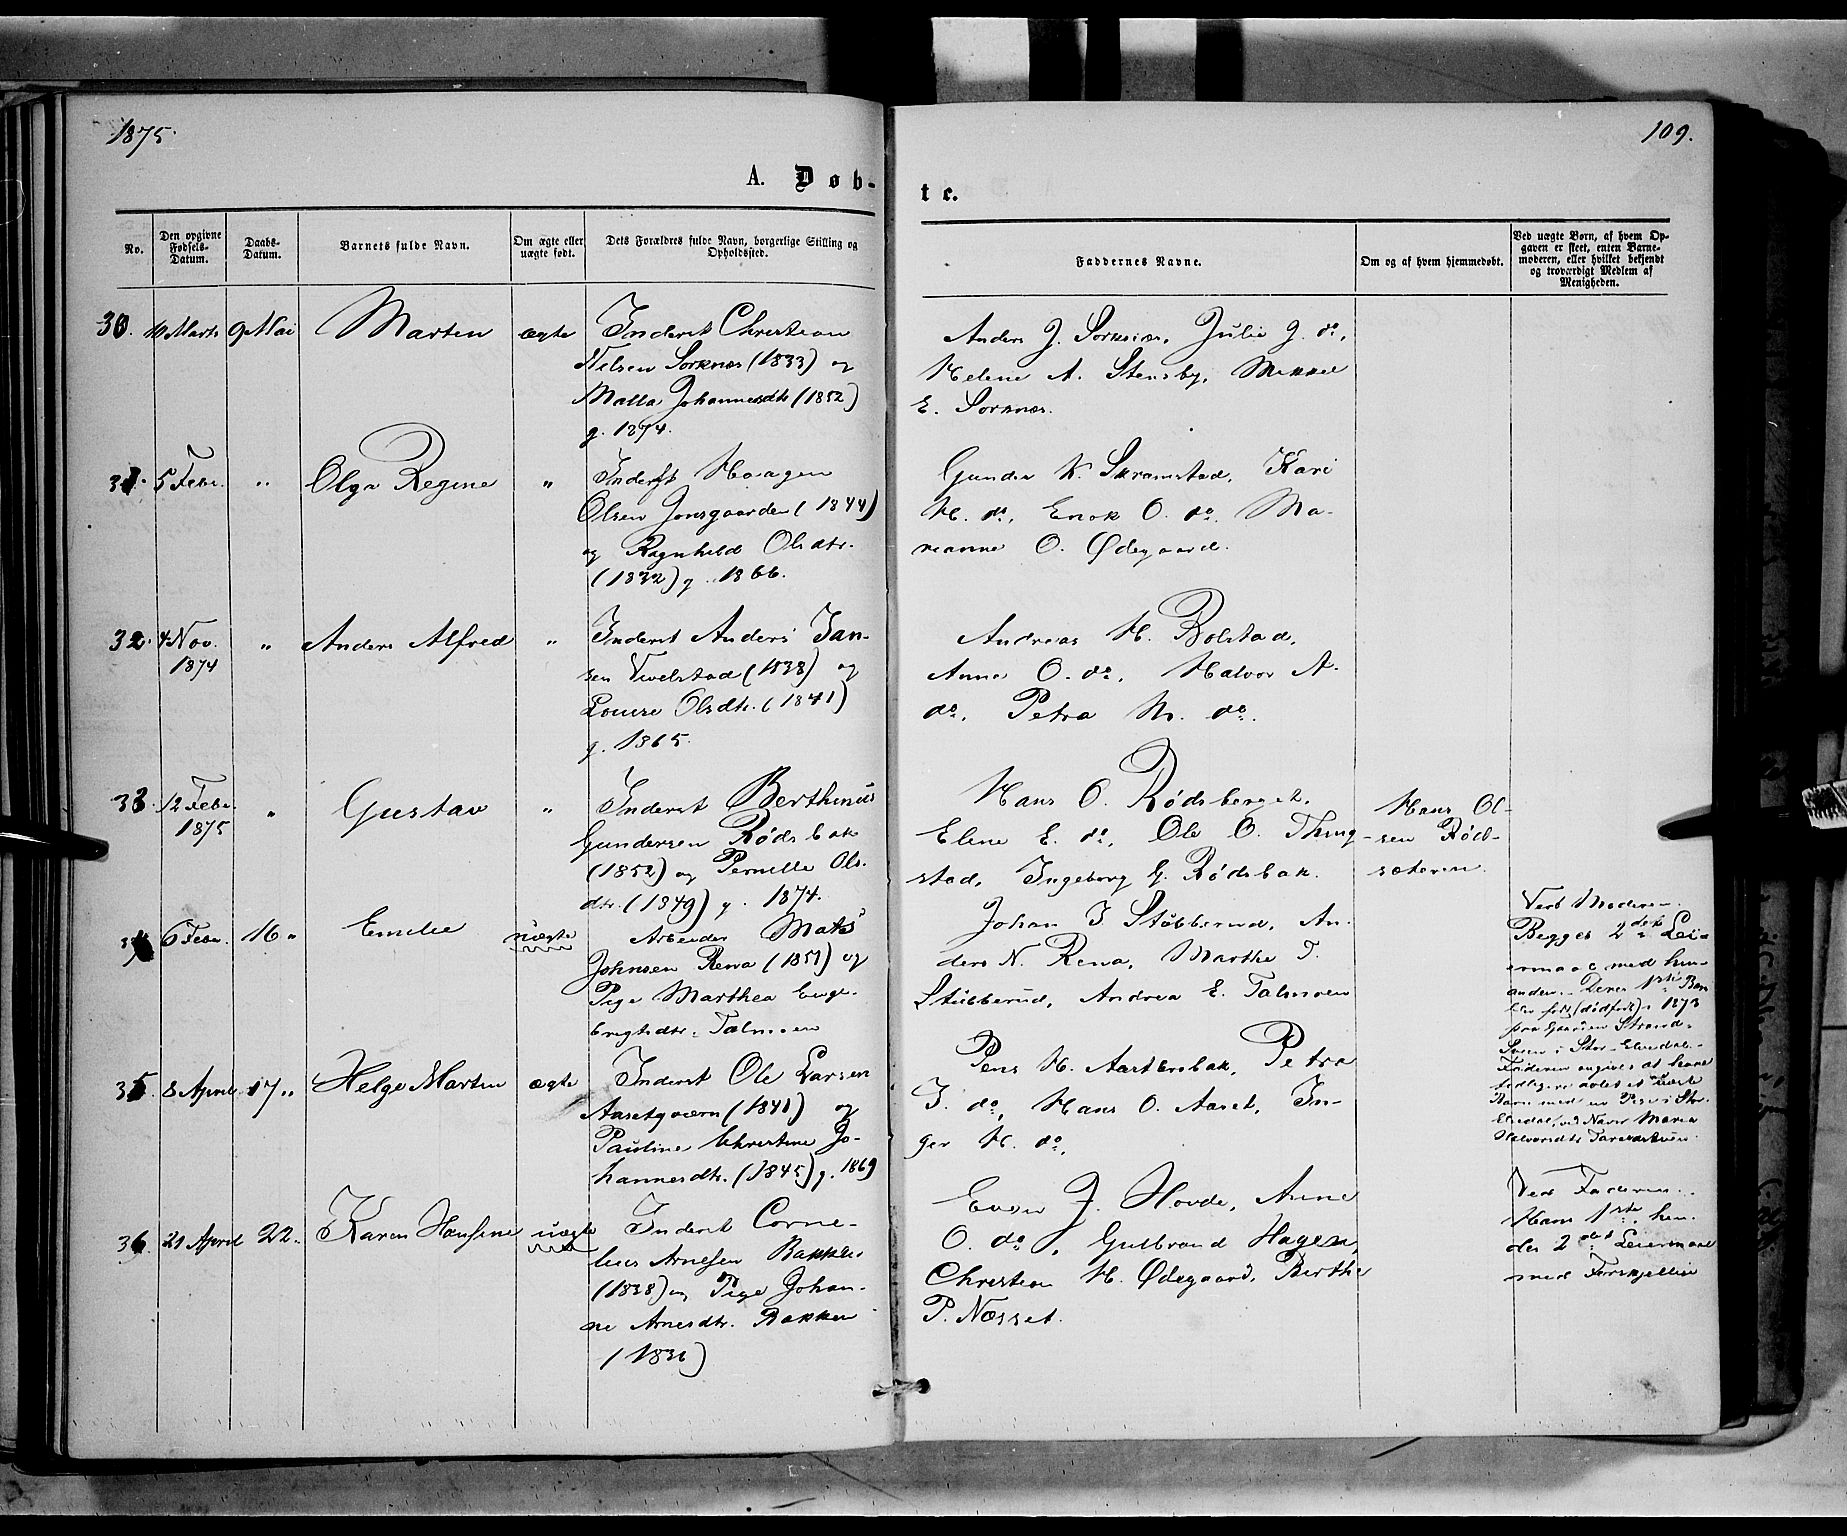 1875.
109.
A. Døb-
te.
No.
Den opgivne
Fødsels-
Datum.
Daabs-
Datum.
Barnets fulde Navn.
Om ægte eller
uægte født.
Dets Forældres fulde Navn, borgerlige Stilling og
Opholdssted.
Faddernes Navne.
Om og af hvem hjemmedøbt.
Ved uægte Børn, af hvem Op-
gaven er skeet, enten Barne-
moderen, eller hvilket bekjendt
og troværdigt Medlem af
Menigheden.
30.
10 Marts
9 Mai
Marten
ægte
Inderst Christian
Nelsen Sorknæs (1833) og
Malla Johannesdtr (1852)
g. 1874.
Anders J. Sorknæs, Julie J. do,
Helene A. Stensby, Mikkel
E. Sorknæs.
31.
5 Febr.
"
Olga Regine
"
Inderst Haagen
Olsen Jonsgaarden (1844)
og Ragnhild Olsdtr.
(1832) g. 1866.
Gunder K. Skramstad, Kari
H. do, Enok O. do, Ma-
rianne O. Ødegaard.
32.
4 Nov.
1874
"
Anders Alfred
"
Inderst Anders Jan-
sen Vivelstad (1838) og
Louise Olsdtr. (1841)
g. 1865.
Andreas H. Bolstad,
Anne O. do, Halvor A.
do, Petra M. do.
33.
12 Febr.
1875
"
Gustav
"
Inderst Berthinus
Gundersen Rødsbak
(1852) og Pernille Ols-
dtr. (1849) g. 1874.
Hans O. Rødsberget,
Elene E. do, Ole O. Thing-
stad, Ingeborg G. Rødsbak.
Hans Ol-
sen Rød-
sæteren.
34
6 Febr.
16 "
Emilie
uægte
Arbeider Mats
Johnsen Rena (1851) og
Pige Marthea Enge-
brigtsdtr. Talmoen
Johan J Stubberud, An-
ders N. Rena, Marthe J.
Stubberud, Andrea E. Talmoen
Ved Moderen.
Begges 2det Lei-
ermaal med hin-
anden. Deres 1ste Barn
blev født (dødfødt) i 1873
paa Gaarden Strand-
i Stor-Elvedal.
Faderen angives at have
tidligere avlet et uægte
Barn med en Pige i Stor-
Elvedal, ved Navn Maria
Halvorsdtr
35.
8 April
17 "
Helge Martin
ægte
Inderst Ole Larsen
Aasetqværn (1841) og
Pauline Christine Jo-
hannesdtr. (1845) g. 1869
Pens H. Aastersbak, Petra
J. do, Hans O. Aaset, In-
ger H. do,
36
21 April
22.
Karen Hansine
uægte
Inderst Corne-
lius Arnesen Bakken
(1838) og Pige Johan-
ne Arnesdtr. Bakken
(1836)
Even J. Hovde, Anne
O. do, Gulbrand Hagen,
Christian H. Ødegaard, Birthe
P. Næsset.
Ved Faderen.
Hans 1ste, hen-
des 2det Leiermaal
med Forskjellige